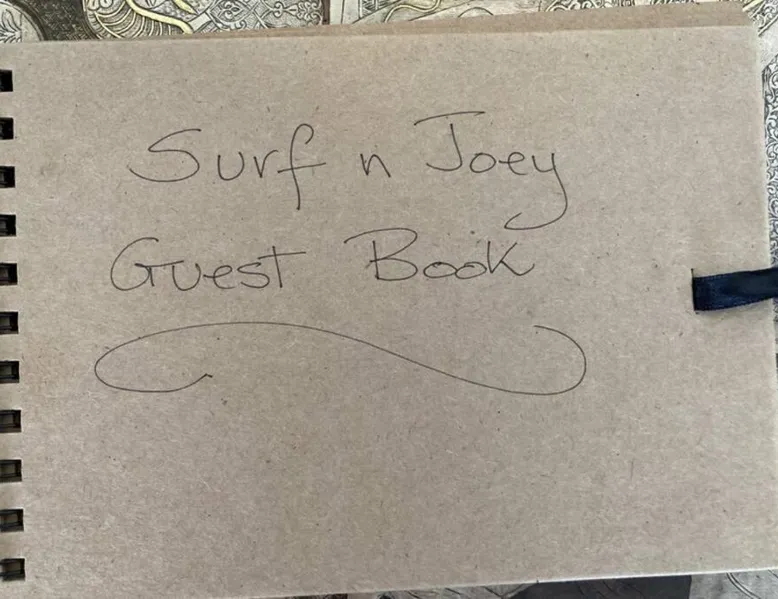 Surf n Joey
Guest Book